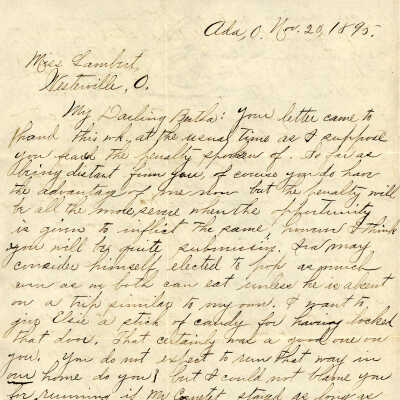 Ada, O. Nov. 20, 1895.
Miss Lambert,
Westerville, O.
My Darling Bertha: Your letter came to
hand this wk. at the usual time as I suppose
you read the penalty spoken of. So far as
being distant from you, of course you do have
the advantage of me now but the penalty will
be all the more severe when the opportunity
is given to inflict the same, however I think
you will be quite submissive. Ira may
consider himself elected to pop as much
corn as we both can eat unless he is absent
on a trip similar to my own. I want to
give Elsie a stick of candy for having locked
that door. That certainly was a good one on
you. You do not expect to run that way in
our home do you? but I could not blame you
for running if Mr. stayed as long as